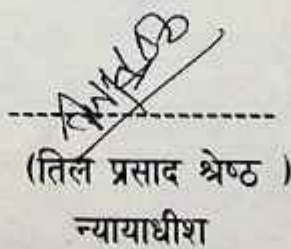 (तिल प्रसाद श्रेष्ठ )
न्यायाधीश